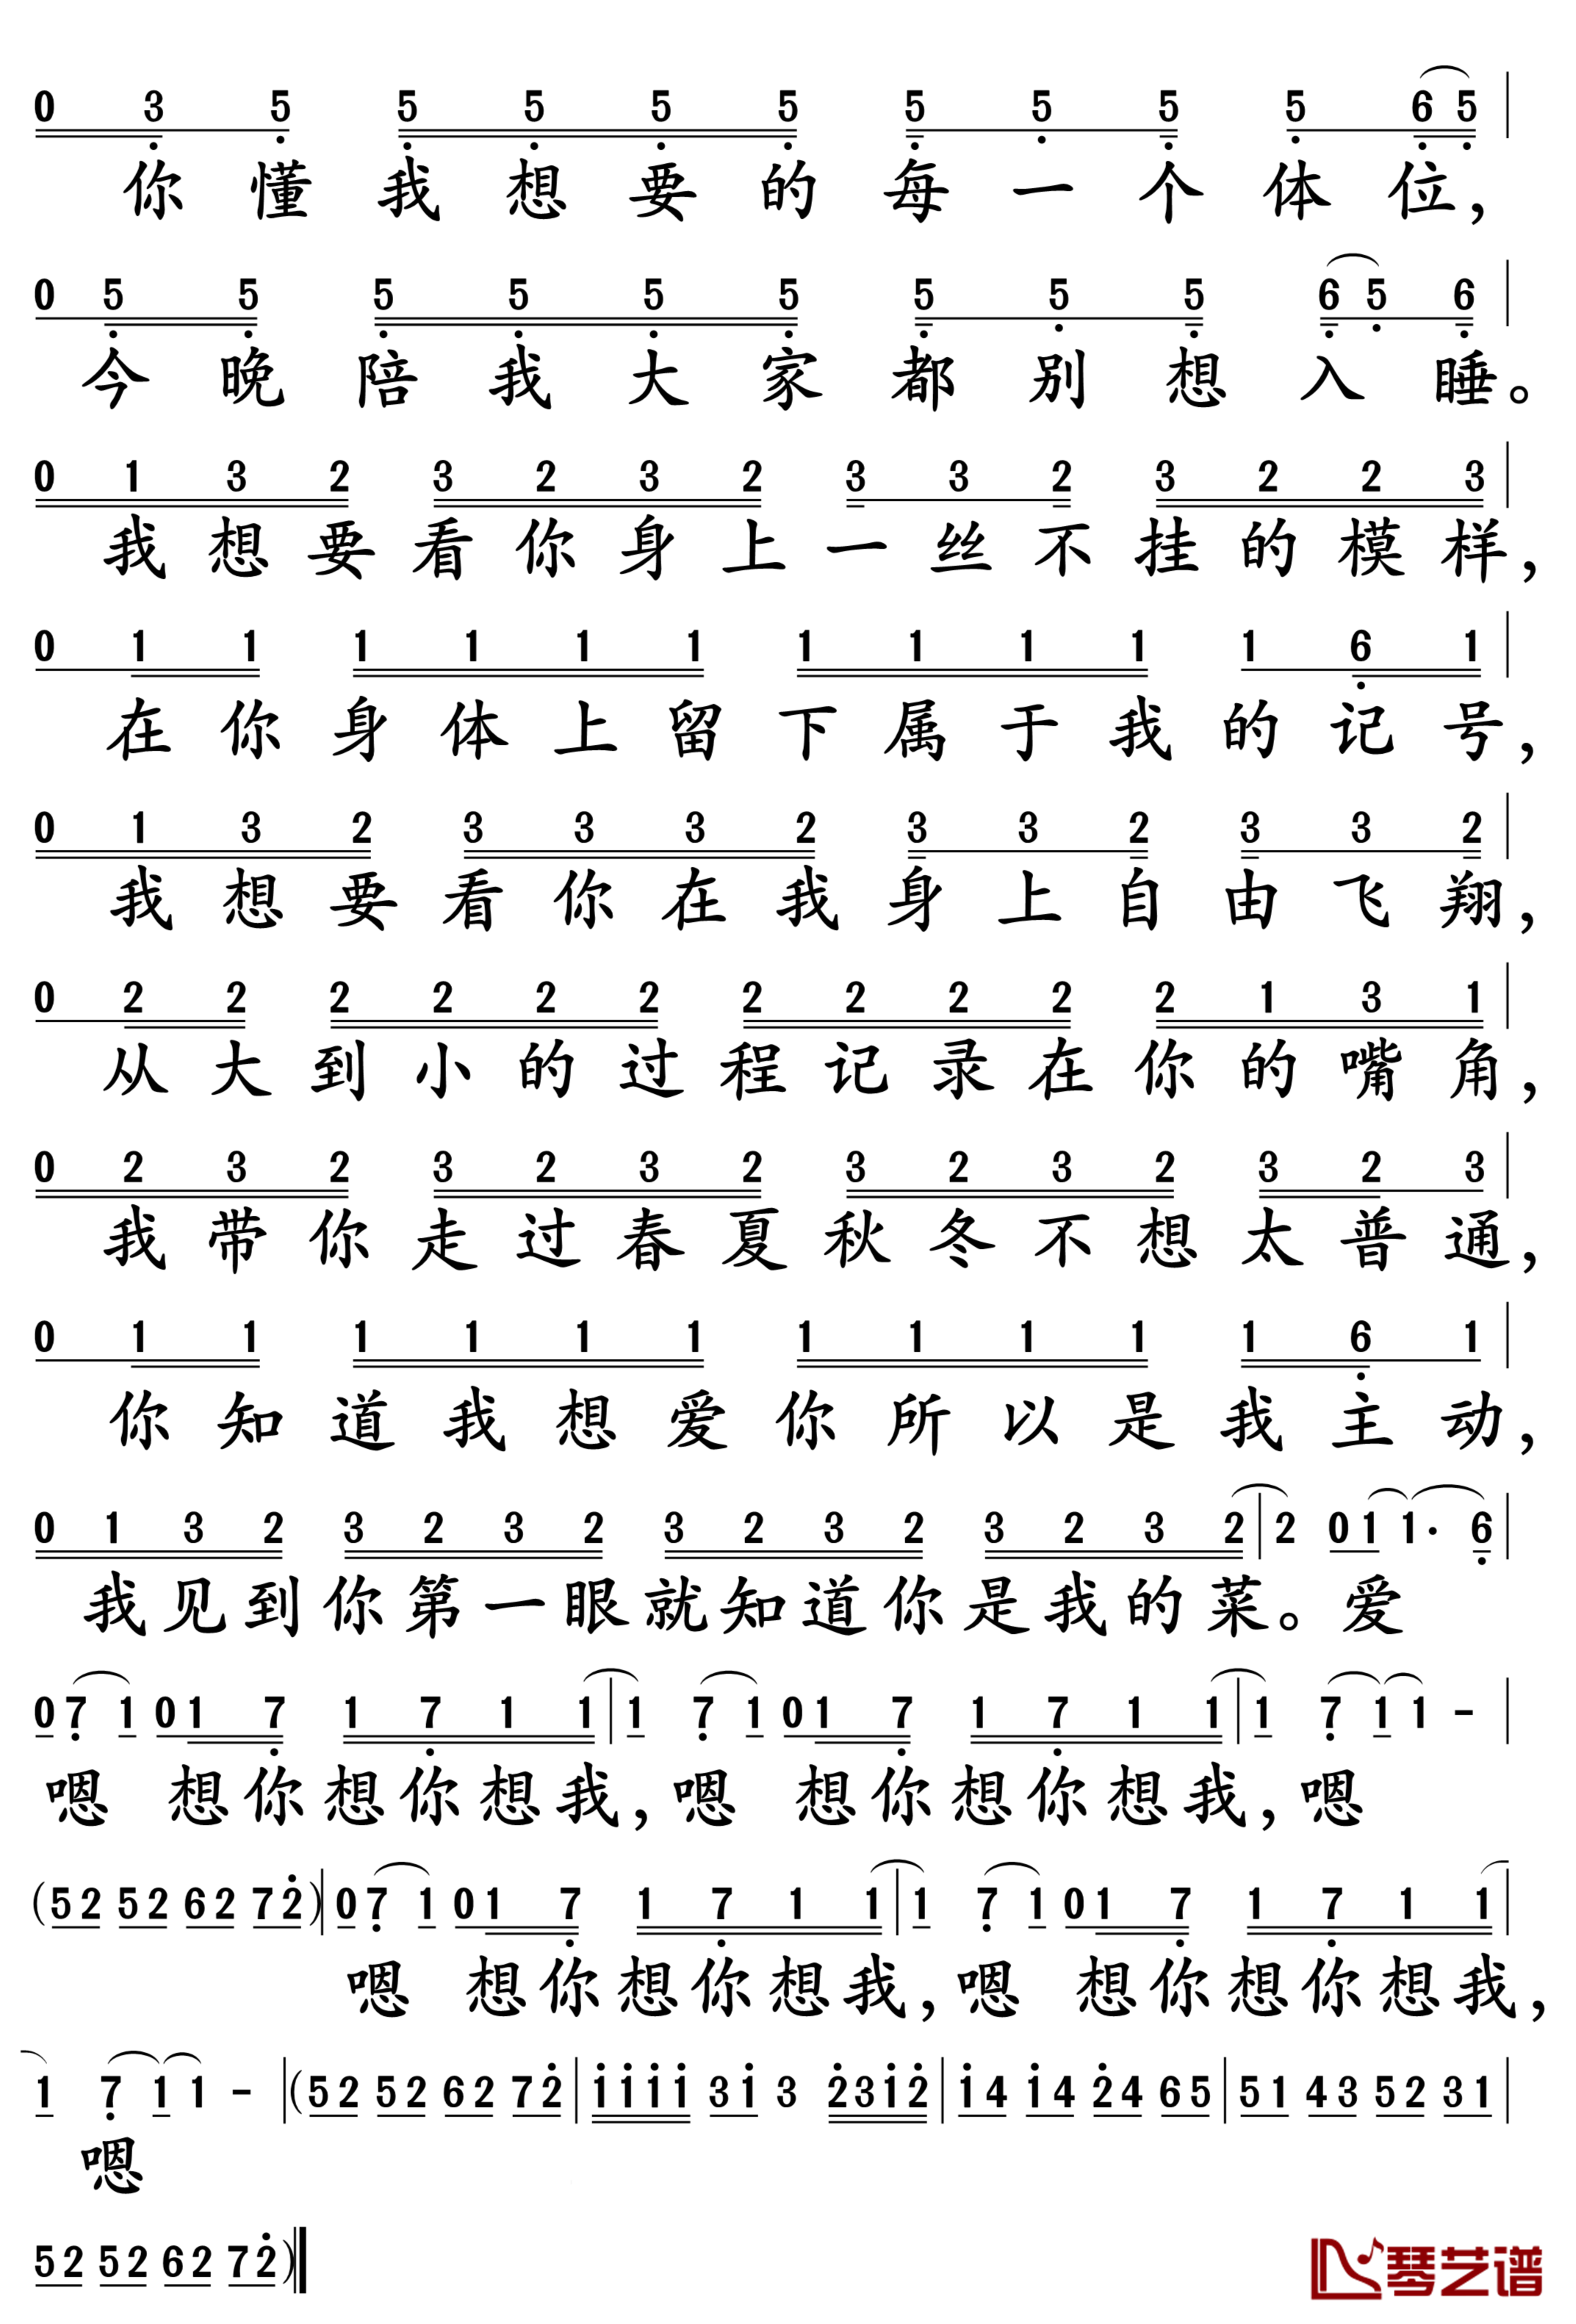 0 3 5 5 5 5 5 5 5 5 5 6 5
你懂我想要的每一个体位，
0 5 5 5 5 5 5 5 5 5 6 5 6
今晚陪我大家都别想入睡。
0 1 3 2 3 2 3 2 3 3 2 3 2 2 3
我想要看你身上一丝不挂的模样，
0 1 1 1 1 1 1 1 1 1 1 1 6 1
在你身体上留下属于我的记号，
0 1 3 2 3 3 3 2 3 3 2 3 3 2
我想要看你在我身上自由飞翔，
0 2 2 2 2 2 2 2 2 2 2 2 1 3 1
从大到小的过程记录在你的嘴角，
0 2 3 2 3 2 3 2 3 2 3 2 3 2 3
我带你走过春夏秋冬不想太普通，
0 1 1 1 1 1 1 1 1 1 1 1 6 1
你知道我想爱你所以是我主动，
0 1 3 2 3 2 3 2 3 2 3 2 3 2 3 2 | 2 0 1 1· 6
我见到你第一眼就知道你是我的菜。爱
0 7 1 0 1 7 1 7 1 1 | 1 7 1 0 1 7 1 7 1 1 | 1 7 1 1 - |
嗯 想你想你想我，嗯 想你想你想我，嗯
(5 2 5 2 6 2 7 2) | 0 7 1 0 1 7 1 7 1 1 | 1 7 1 0 1 7 1 7 1 1 |
嗯 想你想你想我，嗯 想你想你想我，
1 7 1 1 - | (5 2 5 2 6 2 7 2 | 1 1 1 1 3 1 3 2 3 1 2 | 1 4 1 4 2 4 6 5 | 5 1 4 3 5 2 3 1 |
嗯
5 2 5 2 6 2 7 2)
琴艺谱